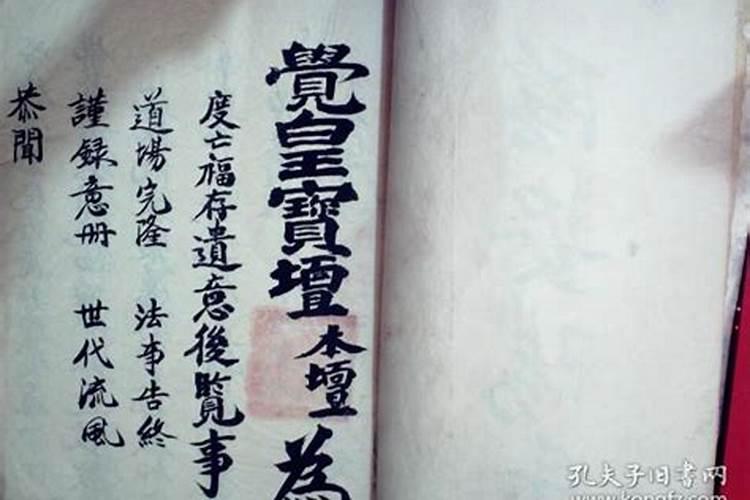 覺皇寶壇本壇為
度亡福存遺意後覽事
道場完隆 法事告終
謹録意册 世代流風
恭聞
孔夫子旧书网